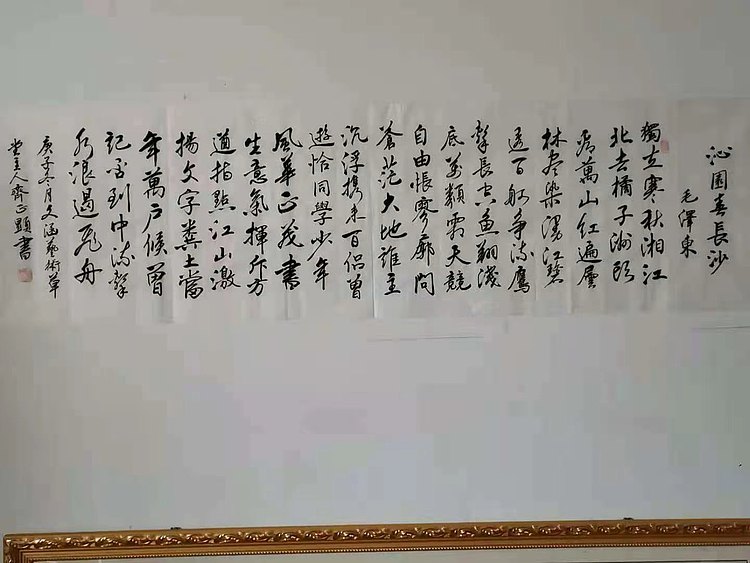 沁園春長沙
毛澤東
獨立寒秋湘江
北去橘子洲头
看萬山紅遍層
林尽染漫江碧
透百舸争流鷹
擊長空魚翔淺
底萬類霜天競
自由悵寥廓問
蒼茫大地誰主
沉浮携来百侣曾
遊恰同學少年
風華正茂書
生意氣揮斥方
遒指點江山激
揚文字糞土當
年萬户候曾
記否到中流擊
水浪遏飛舟
庚子冬月文涵藝術草
堂主人齊正顯書